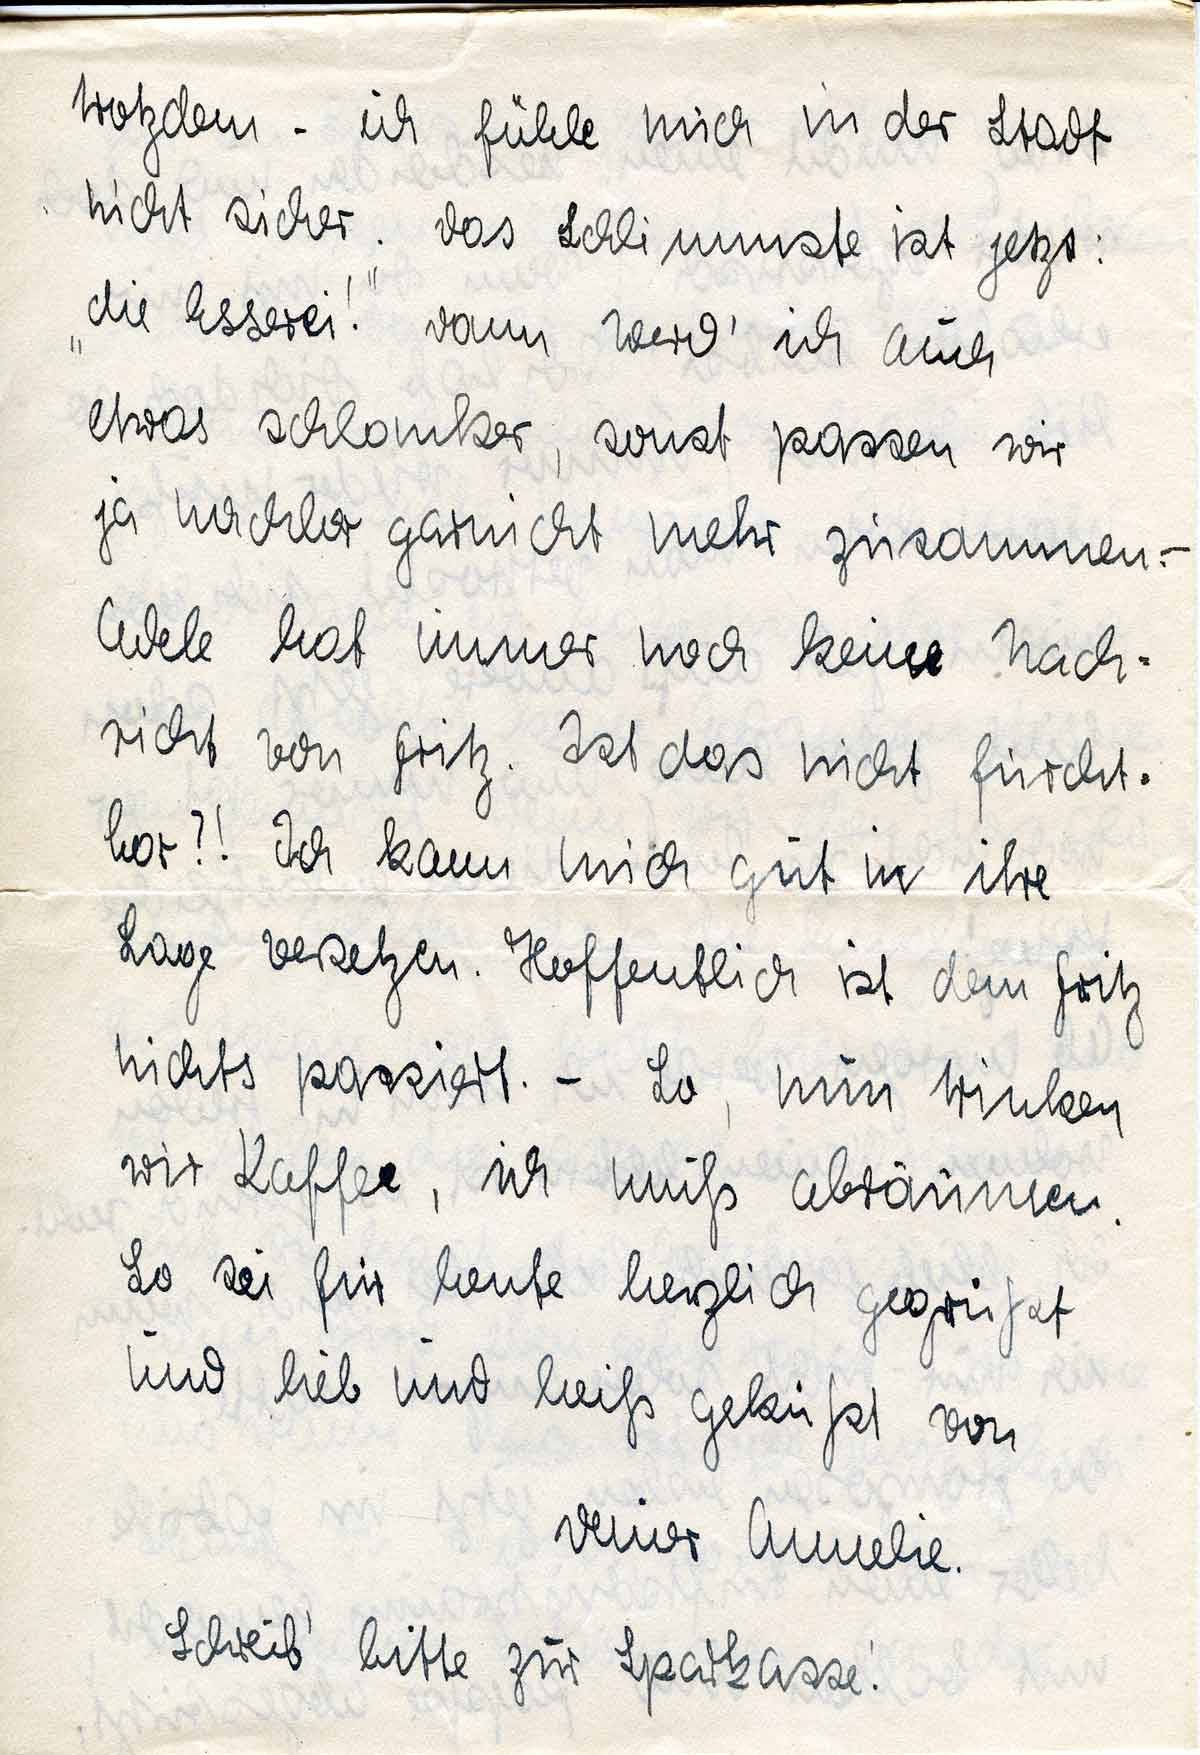 trotzdem - ich fühle mich in der Stadt
nicht sicher. Das Schlimmste ist jetzt:
„die Esserei!" Dann werd' ich auch
etwas schlanker, sonst passen wir
ja nachher garnicht mehr zusammen.-
Adele hat immer noch keine Nach-
richt von Fritz. Ist das nicht furcht-
bar?! Ich kann mich gut in ihre
Lage versetzen. Hoffentlich ist dem Fritz
nichts passiert. - So, nun trinken
wir Kaffee, ich muß abräumen.
So sei für heute herzlich gegrüßt
und lieb und heiß geküßt von
Deiner Annelie.
Schreib' bitte zur Sparkasse!